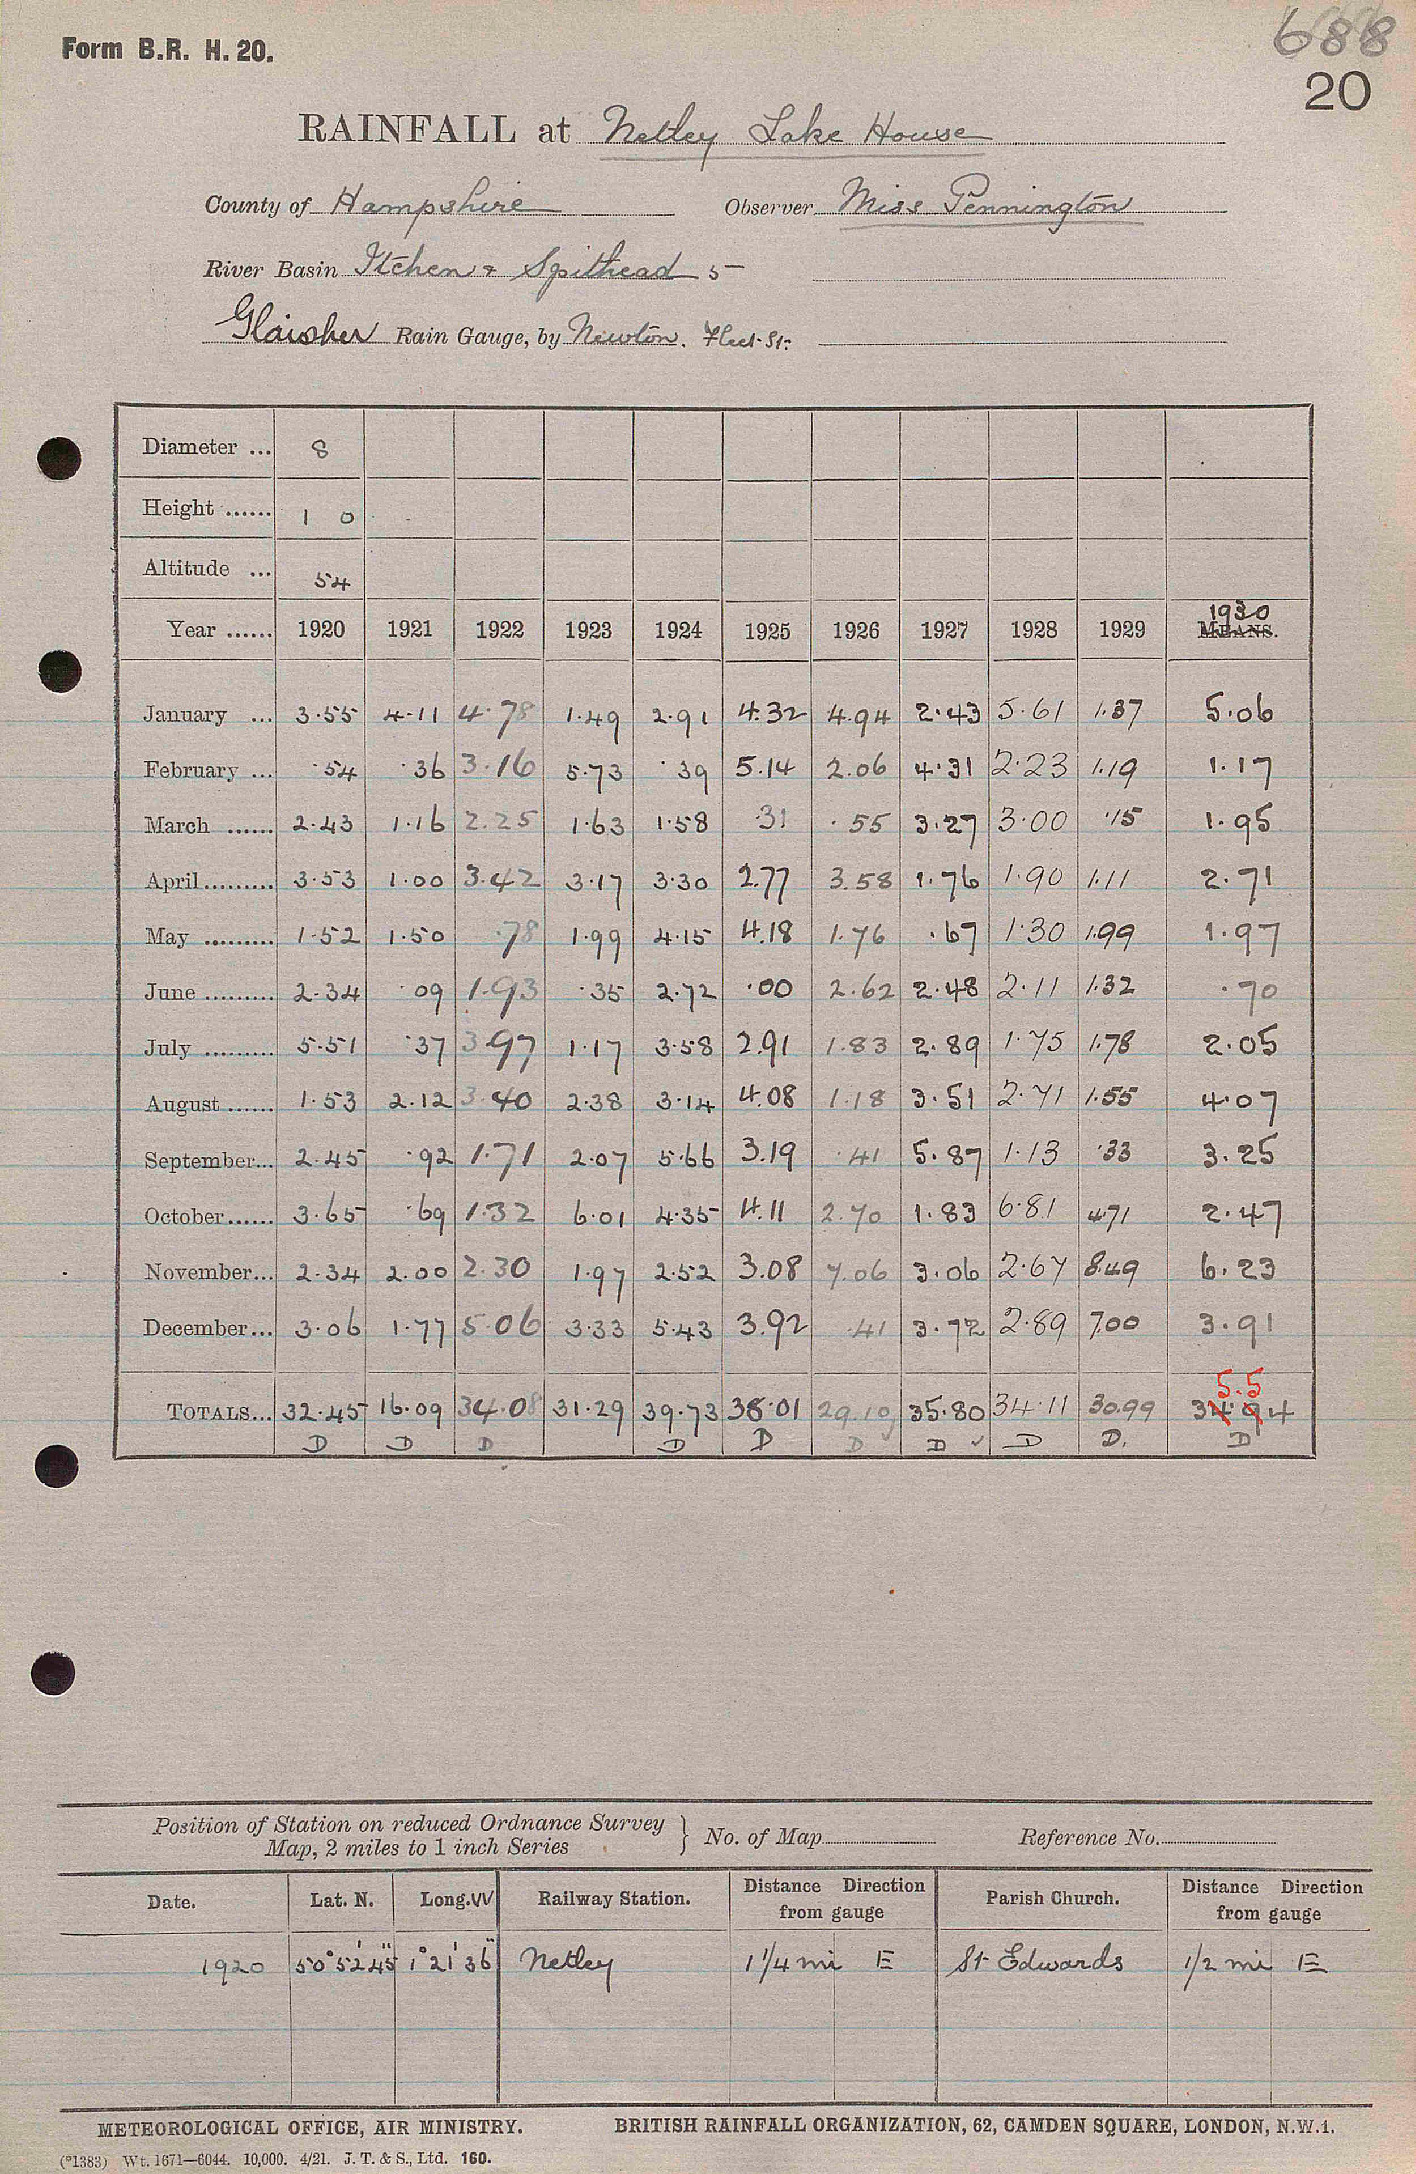 688
Form B.R. H. 20.
20
RAINFALL at Netley Lake House
County of Hampshire Observer Miss Pennington
River Basin Itchen & Spithead 5
Glaisher Rain Gauge, by Newton. Fleet St:
Diameter ... 8
Height ...... 1 0
Altitude ... 54
1930
Year ...... 1920 1921 1922 1923 1924 1925 1926 1927 1928 1929 MEANS.
January ... 3.55 4.11 4.78 1.49 2.91 4.32 4.94 2.43 5.61 1.37 5.06
February ... .54 .36 3.16 5.73 .39 5.14 2.06 4.31 2.23 1.19 1.17
March ...... 2.43 1.16 2.25 1.63 1.58 .31 .55 3.27 3.00 .15 1.95
April ......... 3.53 1.00 3.42 3.17 3.30 2.77 3.58 1.76 1.90 1.11 2.71
May ......... 1.52 1.50 .78 1.99 4.15 4.18 1.76 .67 1.30 1.99 1.97
June ......... 2.34 .09 1.93 .35 2.72 .00 2.62 2.48 2.11 1.32 .70
July ......... 5.51 .37 3.97 1.17 3.58 2.91 1.83 2.89 1.75 1.78 2.05
August ...... 1.53 2.12 3.40 2.38 3.14 4.08 1.18 3.51 2.71 1.55 4.07
September... 2.45 .92 1.71 2.07 5.66 3.19 .41 5.87 1.13 .33 3.25
October ...... 3.65 .69 1.32 6.01 4.35 4.11 2.70 1.83 6.81 4.71 2.47
November... 2.34 2.00 2.30 1.97 2.52 3.08 7.06 3.06 2.67 8.49 6.23
December... 3.06 1.77 5.06 3.33 5.43 3.92 .41 3.72 2.89 7.00 3.91
5.5
TOTALS... 32.45 16.09 34.08 31.29 39.73 38.01 29.10 35.80 34.11 30.99 34.94
D D D D D D D D D. D
Position of Station on reduced Ordnance Survey
Map, 2 miles to 1 inch Series } No. of Map Reference No.
Date. Lat. N. Long. W Railway Station. Distance Direction from gauge Parish Church. Distance Direction from gauge
1920 50° 52' 45" 1° 21' 36" Netley 1 1/4 mi E St Edwards 1/2 mi E
METEOROLOGICAL OFFICE, AIR MINISTRY. BRITISH RAINFALL ORGANIZATION, 62, CAMDEN SQUARE, LONDON, N.W.1.
(*1383) Wt. 1671—6044. 10,000. 4/21. J. T. & S., Ltd. 160.